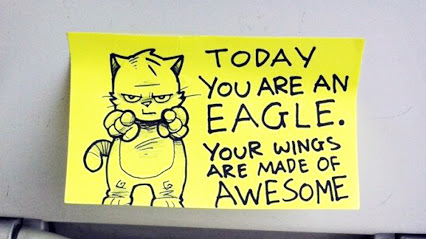 TODAY
YOU ARE AN
EAGLE.
YOUR WINGS
ARE MADE OF
AWESOME